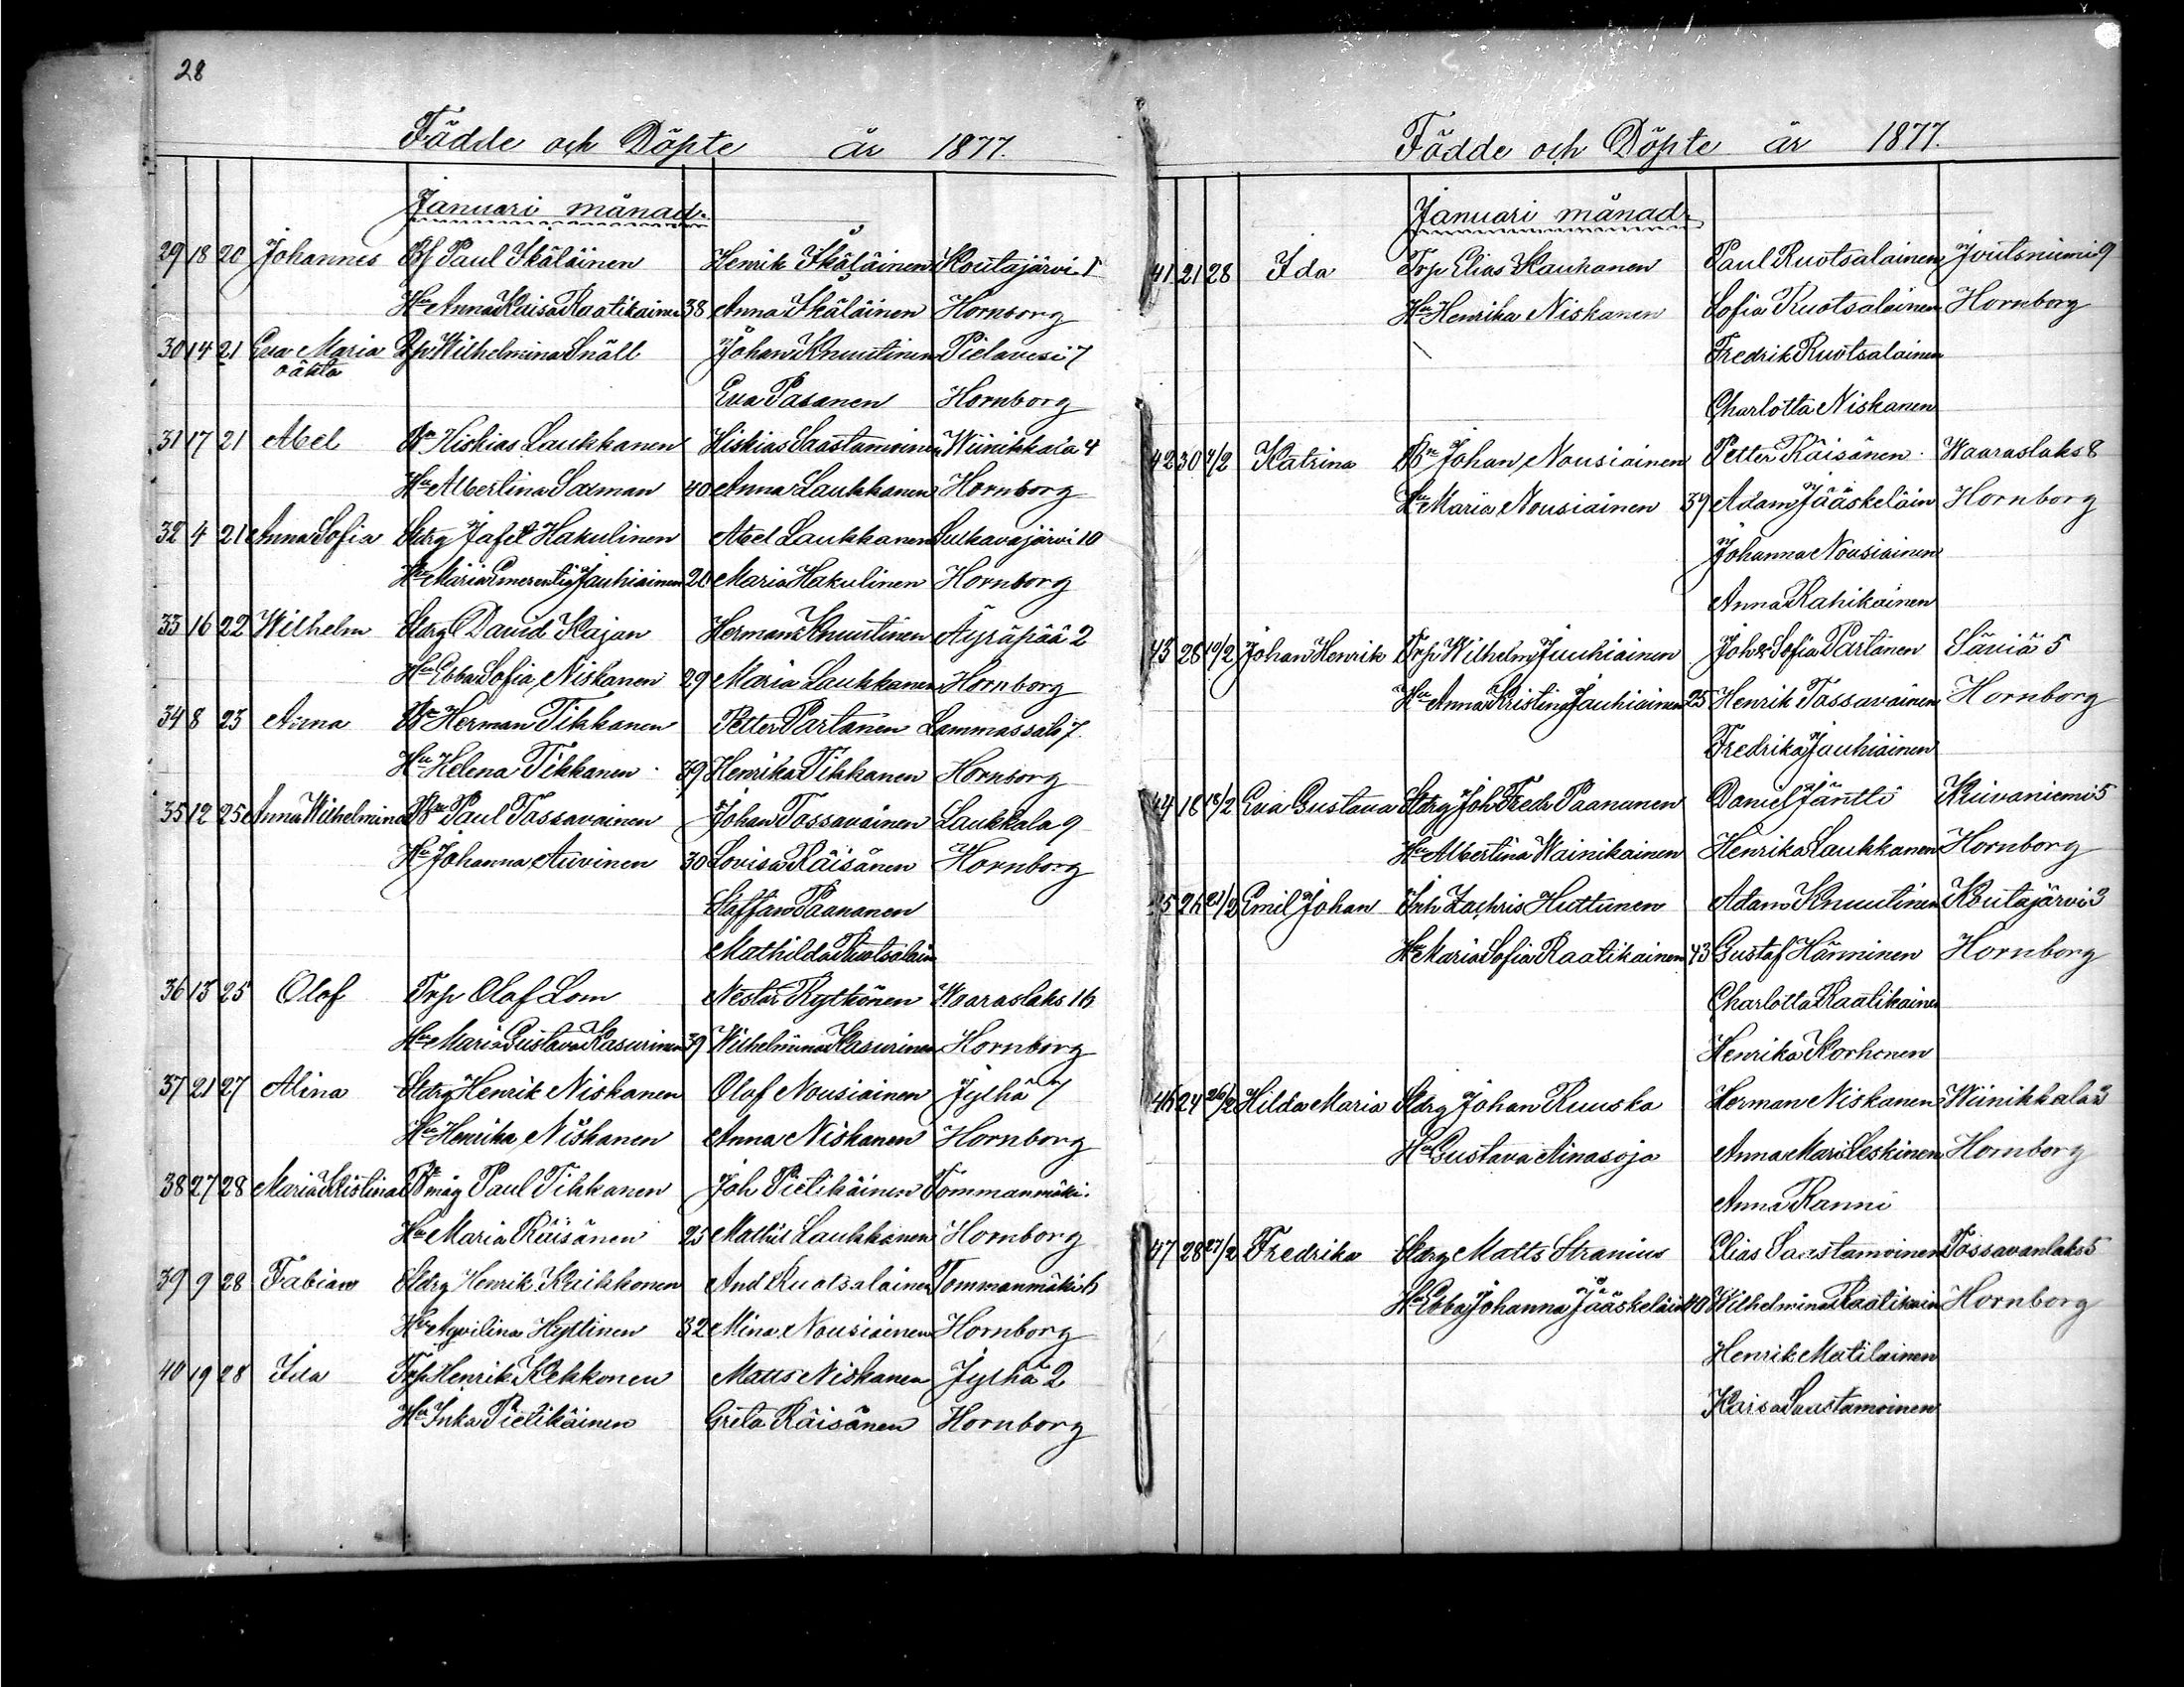 28
Födde och Döpte år 1877.
Januari månad.
29 18 20 Johannes Bf Paul Ikäläinen Henrik Ikäläinen Koutajärvi 1
Hu Anna Kaisa Raatikainen 38 Anna Ikäläinen Hornborg
30 14 21 Eva Maria Pig Wilhelmina Snäll Johan Knuutinen Pielavesi 7
oäkta Eva Pasanen Hornborg
31 17 21 Abel Bn Hiskias Laukkanen Hiskias Saastamoinen Wiinikkala 4
Hu Albertina Saxman 40 Anna Laukkanen Hornborg
32 4 21 Anna Sofia Stdrg Jafet Hakulinen Abel Laukkanen Sulkavajärvi 10
Hu Maria Emerentia Jauhiainen 20 Maria Hakulinen Hornborg
33 16 22 Wilhelm Stdrg David Kajan Herman Knuutinen Äyräpää 2
Hu Ebba Sofia Niskanen 29 Maria Laukkanen Hornborg
34 8 23 Anna Bn Herman Tikkanen Petter Partanen Lammassalo 7.
Hu Helena Tikkanen 39 Henrika Tikkanen Hornborg
35 12 25 Anna Wilhelmina Bn Paul Tossavainen Johan Tossavainen Laukkala 9
Hu Johanna Auvinen 30 Lovisa Räisänen Hornborg
Staffan Paananen
Mathilda Ruotsalain
36 13 25 Olof Trp Olof Lom Nestor Rytkönen Waaraslaks 16
Hu Maria Gustava Kasurinen 39 Wilhelmina Kasurinen Hornborg
37 21 27 Alina Stdrg Henrik Niskanen Olof Nousiainen Jylhä 7
Hu Henrika Niskanen Anna Niskanen Hornborg
38 27 28 Maria Kristina Bmåg Paul Tikkanen Joh Pietikäinen Tommanmäki
Hu Maria Räisänen 25 Mathil Laukkanen Hornborg
39 9 28 Fabian Stdrg Henrik Kaikkonen And Ruotsalainen Tommanmäki 6
Hu Agvilina Hyttinen 32 Mina Nousiainen Hornborg
40 19 28 Ida Trp Henrik Kekkonen Matts Niskanen Jylhä 2
Hu Inka Pietikäinen Greta Räisänen Hornborg
Födde och Döpte år 1877.
Januari månad
41 21 28 Ida Trp Elias Kauhanen Paul Ruotsalainen Joutsniemi 9
Hu Henrika Niskanen Sofia Ruotsalainen Hornborg
Fredrik Ruotsalainen
Charlotta Niskanen
42 30 4/2 Katrina Bn Johan Nousiainen Petter Räisänen Waaraslaks 8
Hu Maria Nousiainen 39 Adam Jääskeläin Hornborg
Johanna Nousiainen
Anna Kahikainen
43 28 10/2 Johan Henrik Trp Wilhelm Jauhiainen Joh & Sofia Partanen Säviä 5
Hu Anna Kristina Jauhiainen 25 Henrik Tossavainen Hornborg
Fredrika Jauhiainen
44 18 18/2 Eva Gustava Stdrg Joh Fredr Paananen Daniel Jäntti Kiivaniemi 5
Hu Albertina Wainikainen Henrika Laukkanen Hornborg
45 26 21/2 Emil Johan Inh Zachris Huttunen Adam Knuutinen Koutajärvi 3
Hu Maria Sofia Raatikainen 43 Gustaf Hänninen Hornborg
Charlotta Raatikaine
Henrika Korhonen
46 24 26/2 Hilda Maria Stdrg Johan Ruuska Herman Niskanen Wiinikkala 3
Hu Gustava Ainasoja Anna Mari Leskinen Hornborg
Anna Ranni
47 28 27/2 Fredrika Stdrg Matts Stranius Elias Saastamoinen Tossavanlaks 5
Hu Ebba Johanna Jääskeläin 40 Wilhelmina Raatikain Hornborg
Henrik Matilainen
Kaisa Saastamoinen